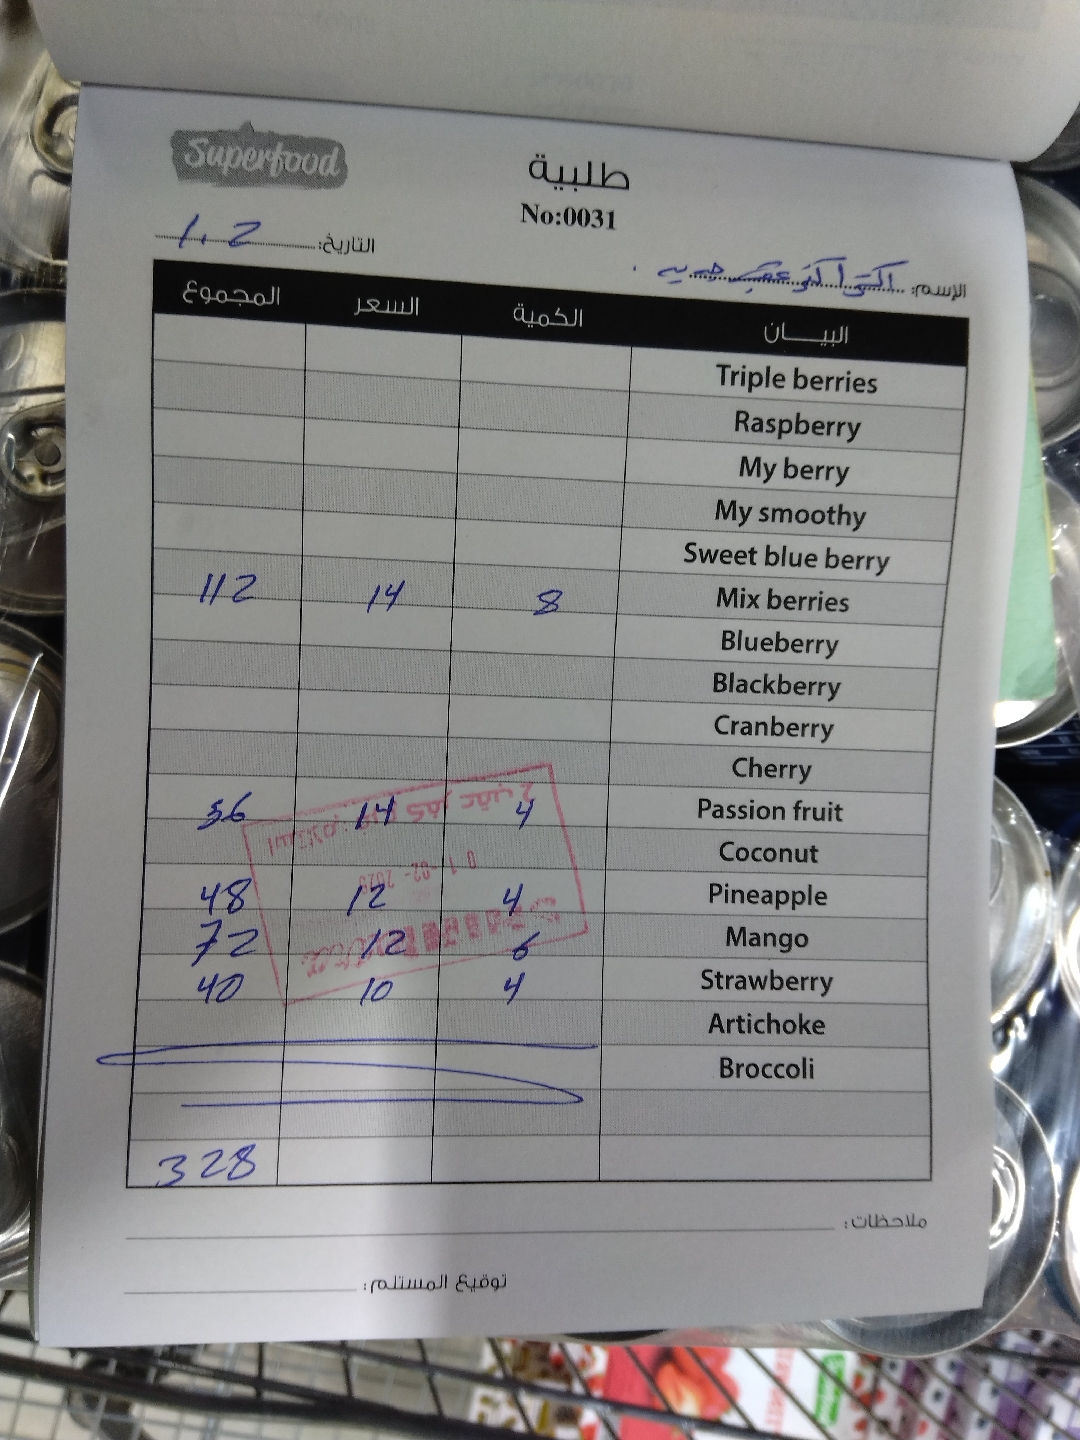 Superfood
طلبية
No:0031
التاريخ: 1.2
الإسم:
البيــــان الكمية السعر المجموع
Triple berries
Raspberry
My berry
My smoothy
Sweet blue berry
Mix berries 8 14 112
Blueberry
Blackberry
Cranberry
Cherry
Passion fruit 4 14 56
Coconut
Pineapple 4 12 48
Mango 6 12 72
Strawberry 4 10 40
Artichoke
Broccoli
328
ملاحظات:
توقيع المستلم: